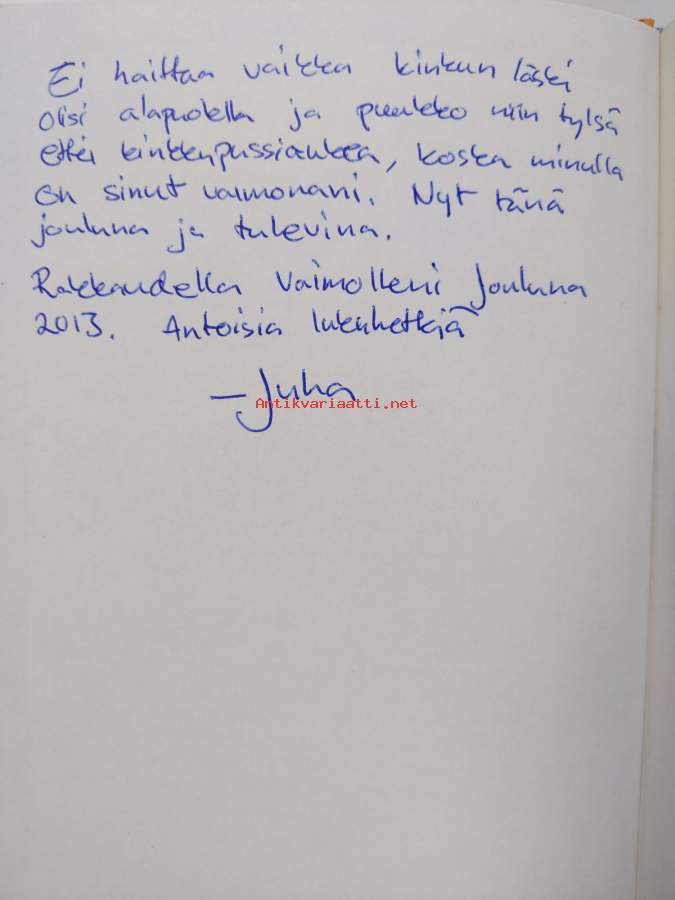 Ei haittaa vaikka kinkun läski
olisi alapuolella ja puukko niin tylsä
ettei kinkkupussi aukea, koska minulla
on sinut vaimonani. Nyt tänä
jouluna ja tulevina.
Rakkaudella Vaimolleni Jouluna
2013. Antoisia lukuhetkiä
– Juha
Antikvariaatti.net